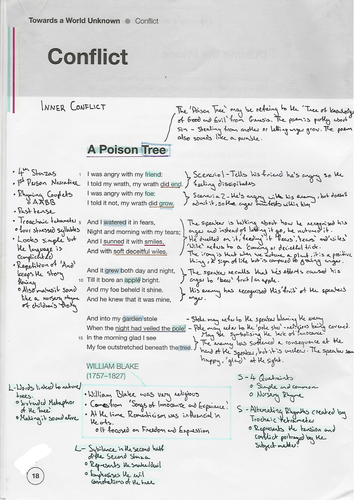 Towards a World Unknown ● Conflict
Conflict
INNER CONFLICT
The 'Poison Tree' may be refering to the 'Tree of knowledge
of Good and Evil' from Genesis. The poem is partly about
sin - stealing from another or letting anger grow. The poem
also sounds like a parable.
A Poison Tree
• 4 Stanzas
• 1st Person Narrative
• Rhyming Couplets
AABB
• Past tense
• Trochaic tetrameter
four stressed syllables
• Looks simple but
the language is
complicated
• Repetition of 'And'
keeps the story
going
• Also made to sound
like a nursery rhyme
or children's story
1 I was angry with my friend:
I told my wrath, my wrath did end.
I was angry with my foe:
I told it not, my wrath did grow.
Scenario 1 - Tells his friend he's angry so the
feeling dissipates
Scenario 2 - He's angry with his enemy, but doesn't
about it, so the anger manifests within him
5 And I watered it in fears,
Night and morning with my tears;
And I sunned it with smiles,
And with soft deceitful wiles.
The speaker is talking about how he recognised his
anger and instead of letting it go, he nutured it.
He dwelled on it, feeding it 'fears', 'tears' and 'wiles'
'Wile' refers to a cunning or deceitful trick.
And it grew both day and night,
10 Till it bore an apple bright.
And my foe beheld it shine,
And he knew that it was mine,
The speaker recalls that his efforts caused his
anger to 'bear' fruit - an apple.
His enemy has recognised this 'fruit' of the speaker's
anger.
And into my garden stole
When the night had veiled the pole;
15 In the morning glad I see
My foe outstretched beneath the tree.
Stole may refer to the speaker blaming the enemy
Pole may refer to the 'pole star'
The enemy has suffered a consequence at the
hand of the speaker, but it is unclear. The speaker seems
happy, 'glad' at the sight.
WILLIAM BLAKE
(1757–1827)
• William Blake was very religious
• Comes from 'Songs of Innocence and Experience'
• At the time Romanticism was influential in
the arts.
It focused on Freedom and Expression
L - Words linked to nature/
trees.
• Extended Metaphor
of the tree
• Making it sound alive
S - 4 Quatrains
• Simple and common
• Nursery Rhyme
S - Alternating Rhythms created by
Trochaic Tetrameter
• Represents the tension and
conflict portrayed by the
Subject matter.
L - Sibilance in the second half
of the Second Stanza
• Represents the snake/devil
• Emphasises the evil
connotations of the tree
18